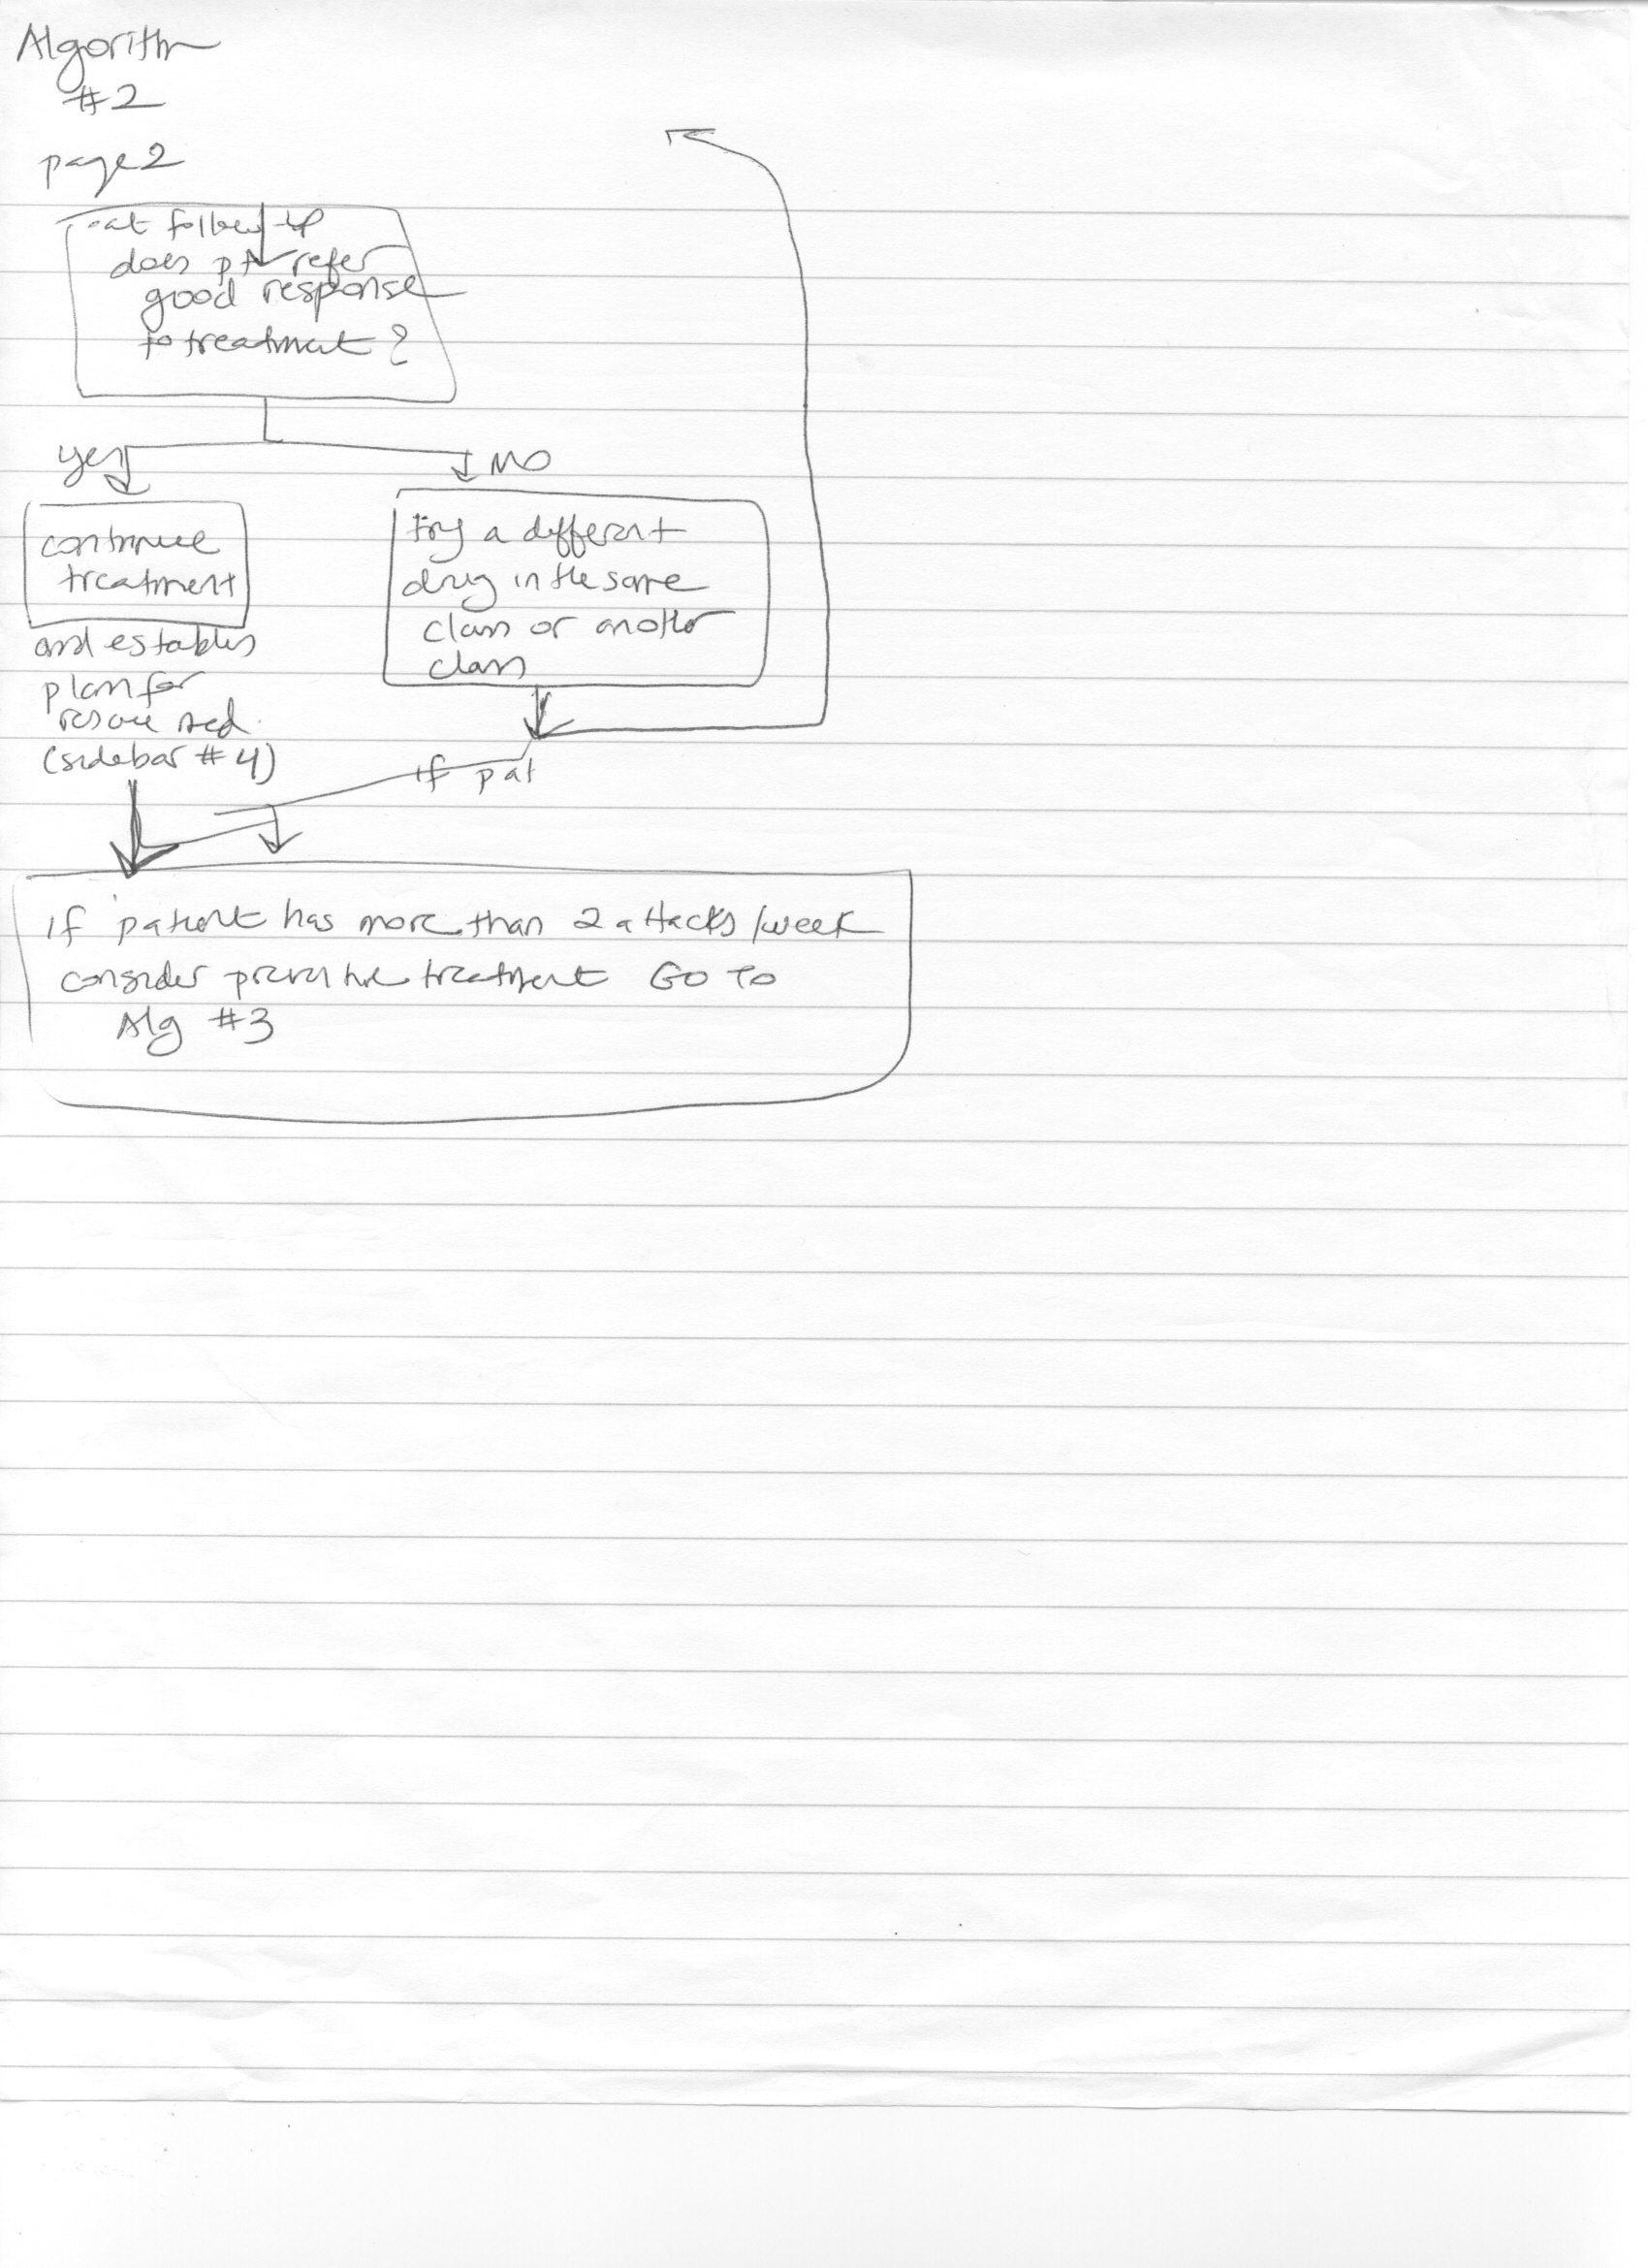 Algorithm
#2
page 2
at follow up
does pt refer
good response
to treatment?
yes
NO
continue
treatment
and establish
plan for
rescue med.
(sidebar #4)
try a different
drug in the same
class or another
class
if pat
if patient has more than 2 attacks/week
consider preventive treatment GO TO
Alg #3